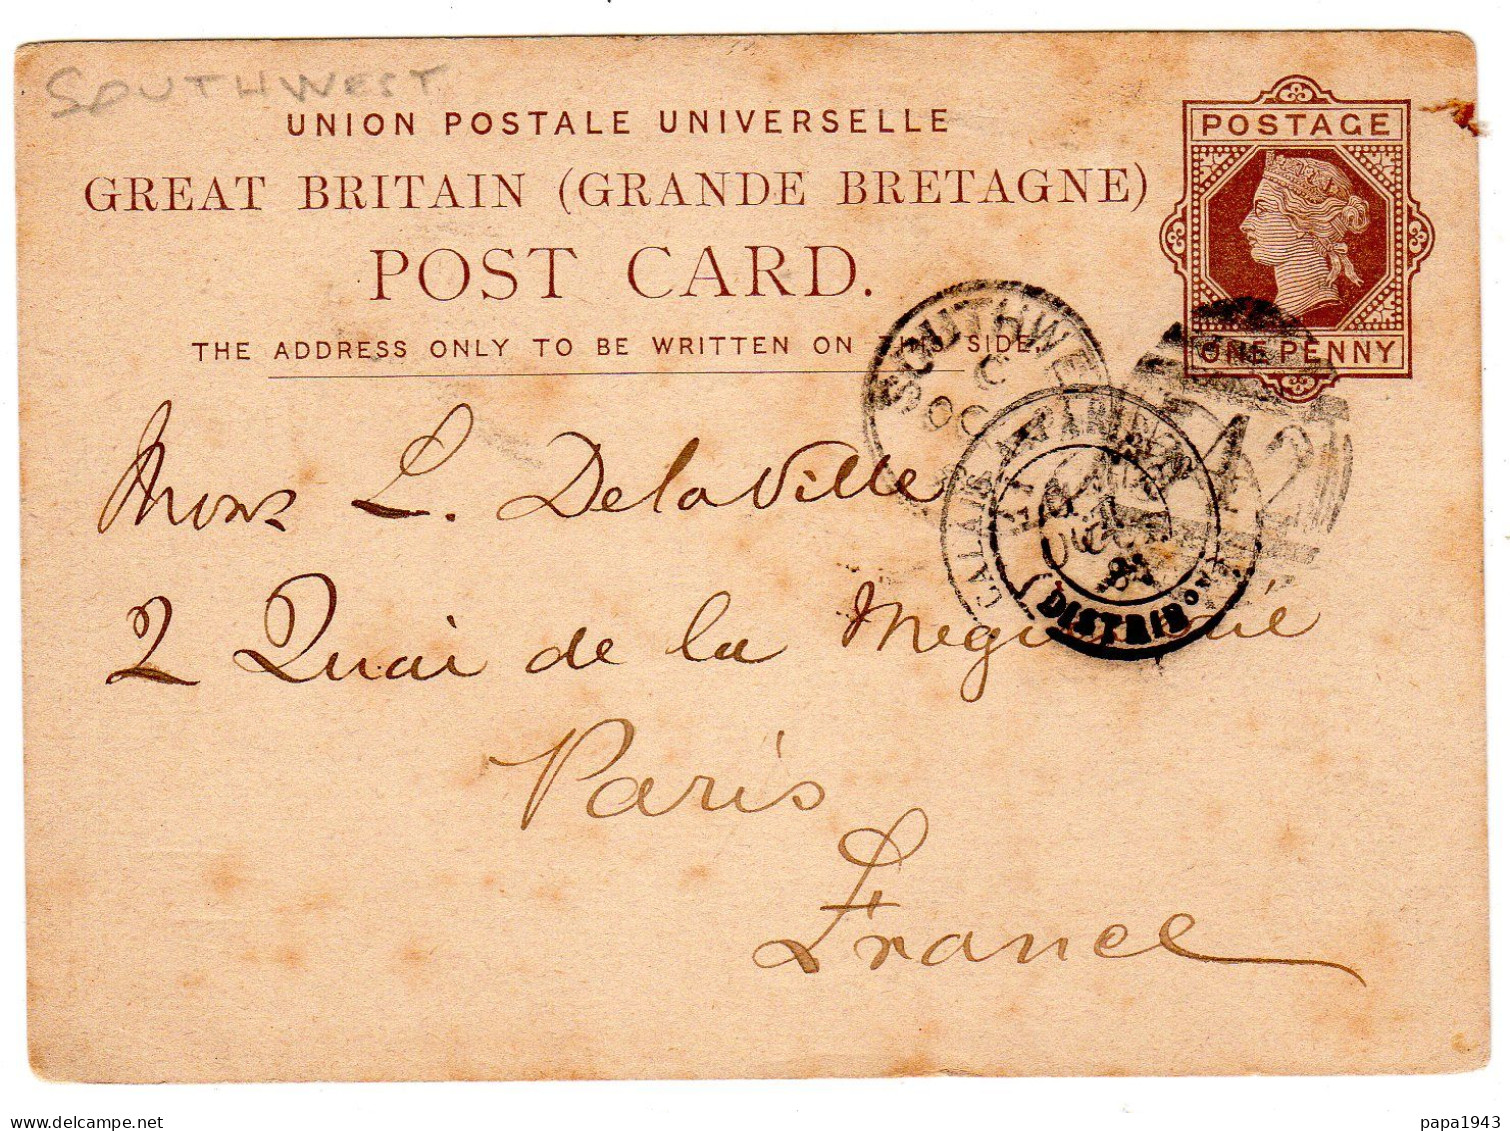 SOUTHWEST
UNION POSTALE UNIVERSELLE
GREAT BRITAIN (GRANDE BRETAGNE)
POST CARD.
THE ADDRESS ONLY TO BE WRITTEN ON THIS SIDE.
POSTAGE
ONE PENNY
SOUTHWE
C
OC
42
CALAIS A PARIS
DISTRIBON
Mons L. Delaville
2 Quai de la
Paris
France
delcampe.net
papa1943